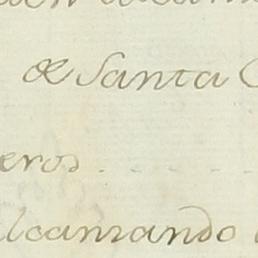 de Santa
eros
lcanzando